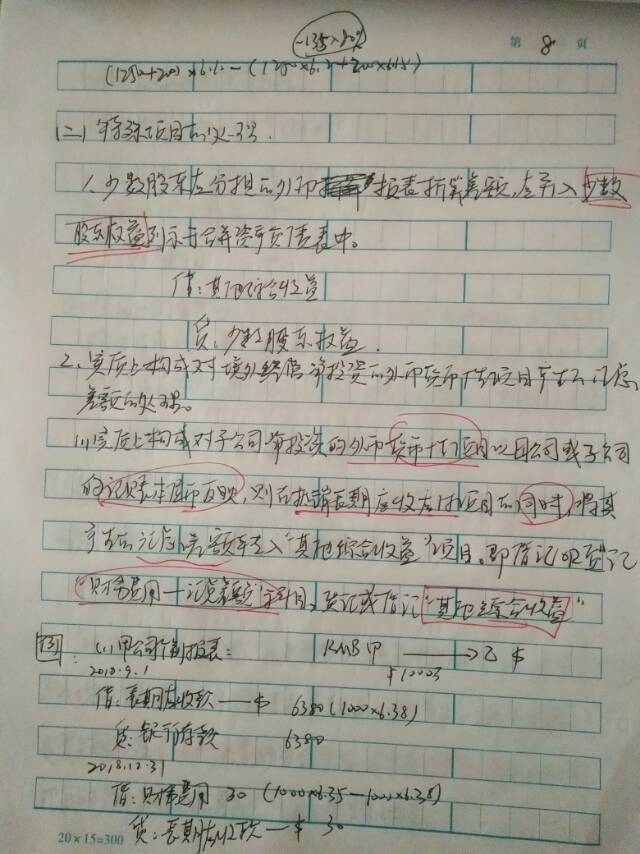 -135×80%
第 8 页
(1250+200)×6.6-(1250×6.3+200×6.15)
(二)特殊项目的处理.
1、少数股东应分担的外币报表折算差额,应并入少数
股东权益列示于合并资产负债表中。
借:其他综合收益
贷:少数股东权益.
2、实质上构成对境外经营净投资的外币货币性项目产生的汇兑
差额的处理。
(1)实质上构成对子公司净投资的外币货币性项目以母公司或子公司
的记账本位币反映,则应抵销长期应收应付项目的同时,将其
产生的汇兑差额转入“其他综合收益”项目,即借记或贷记
“财务费用—汇兑差额”科目,贷记或借记“其他综合收益”
例: (1)甲公司个别报表: RMB 甲 → 乙 $
$1000万
2018.9.1
借:长期应收款—$ 6380(1000×6.38)
贷:银行存款 6380
2018.12.31
借:财务费用 30 (1000×6.35-1000×6.38)
贷:长期应收款—$ 30
20×15=300